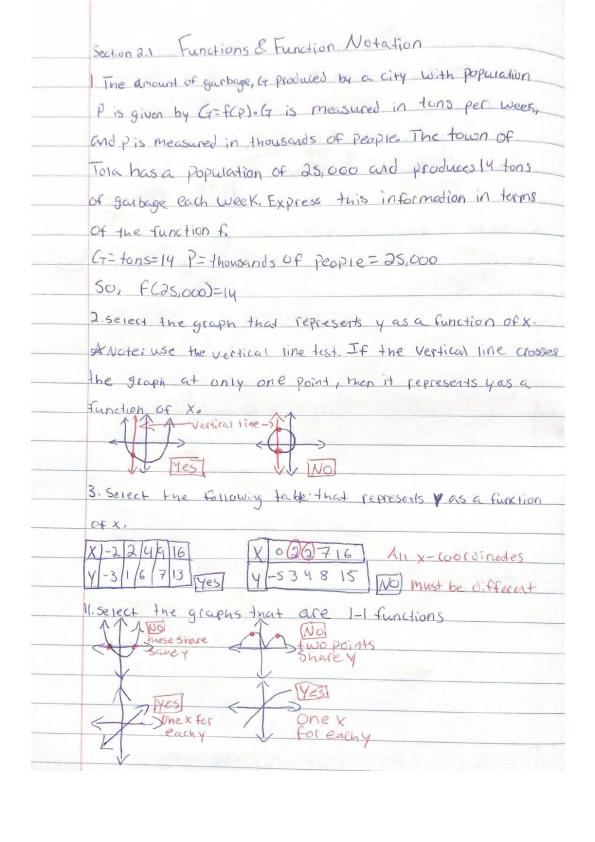 Section 2.1 Functions & Function Notation
1 The amount of garbage, G produced by a city with population
P is given by G=f(p). G is measured in tons per week,
and p is measured in thousands of people. The town of
Tola has a population of 25,000 and produces 14 tons
of garbage each week. Express this information in terms
of the function f.
G=tons=14 P=thousands of people=25,000
So, f(25,000)=14
2. Select the graph that represents y as a function of x.
*Note: use the vertical line test. If the vertical line crosses
the graph at only one point, then it represents y as a
function of x.
Vertical line
Yes No
3. Select the following table that represents y as a function
of x.
X -2 2 4 9 16 X 0 2 2 7 16 All x-coordinates
Y -3 1 6 7 13 Yes Y -5 3 4 8 15 No must be different
4. Select the graphs that are 1-1 functions
No No
these share two points
same y share y
Yes Yes
One x for One x
each y for each y